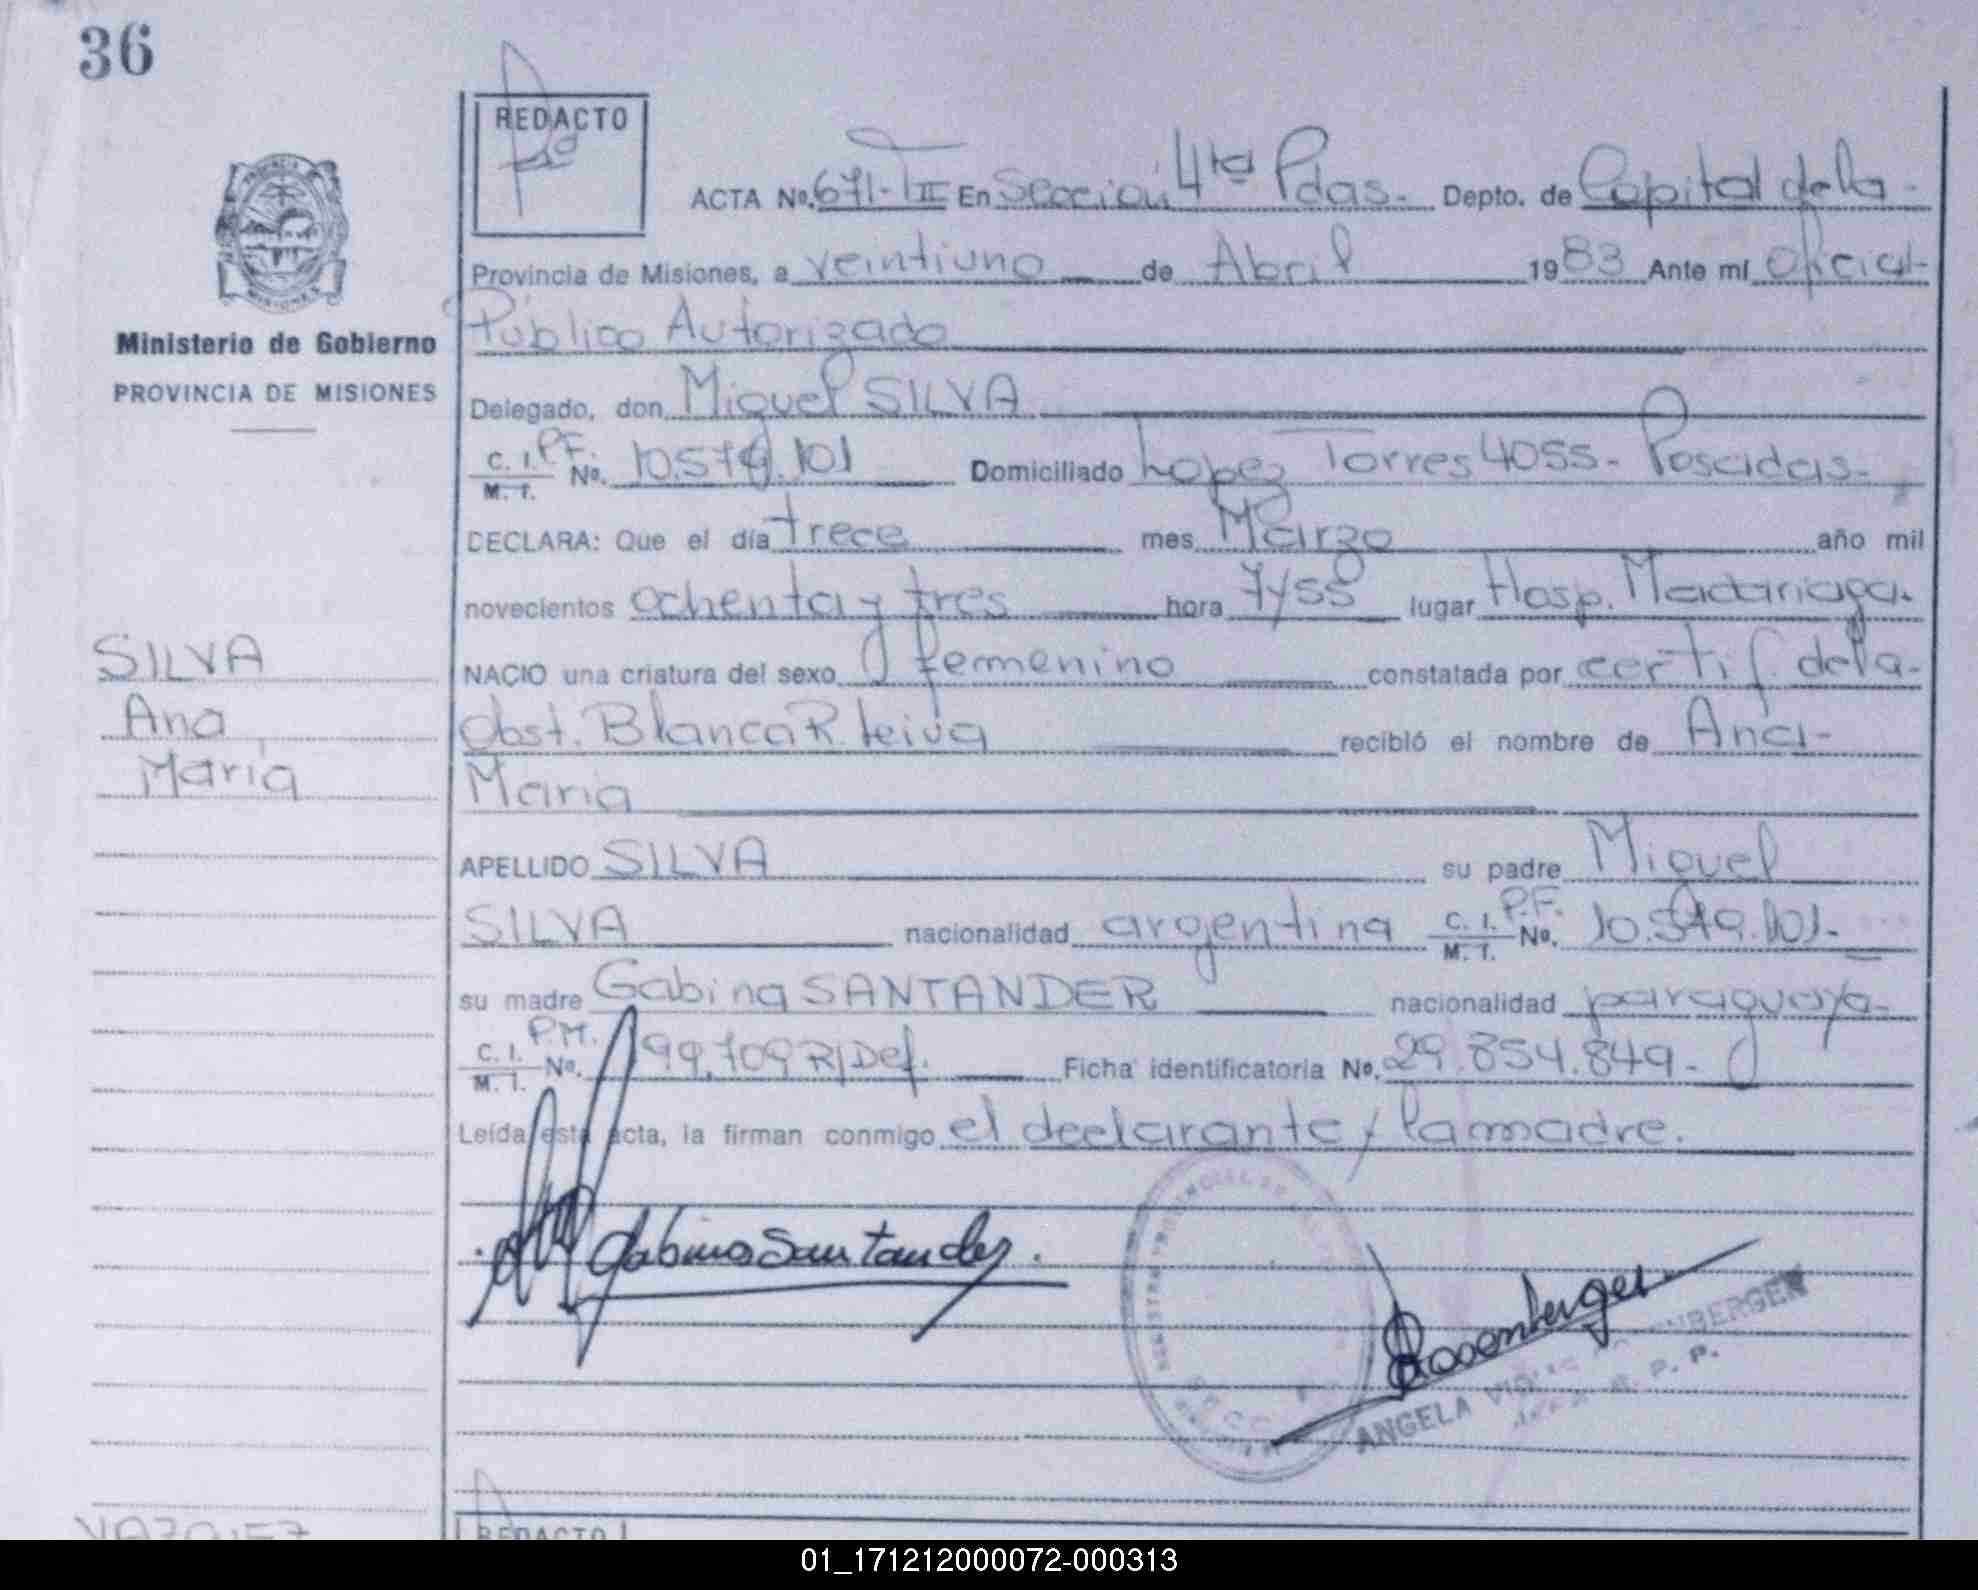 36
REDACTO
ACTA No. 671-TII En Sección 4ta Pdas.- Depto. de Capital de la-
Provincia de Misiones, a veintiuno de Abril 1983 Ante mí Oficial-
Público Autorizado
Ministerio de Gobierno
PROVINCIA DE MISIONES
Delegado, don Miguel SILVA
C. I. P.F. No. 10.579.101 Domiciliado Lopez Torres 4055- Posadas-
M. I.
DECLARA: Que el día trece mes Marzo año mil
novecientos ochenta y tres hora 7y55 lugar Hosp. Madariaga.
SILVA
Ana
María
NACIO una criatura del sexo femenino constatada por certif. de la-
Obst. Blanca R. Leiva recibló el nombre de Ana-
María
APELLIDO SILVA su padre Miguel
SILVA nacionalidad argentina C. I. P.F. No. 10.579.101-
M. I.
su madre Gabina SANTANDER nacionalidad paraguaya-
C. I. P.M. No. 99.709 R/Def. Ficha identificatoria No. 29.854.849-
M. I.
Leída esta acta, la firman conmigo el declarante y la madre.
Gabina Santander.
Rosenberger
ANGELA
P. P.
REDACTO
01_171212000072-000313